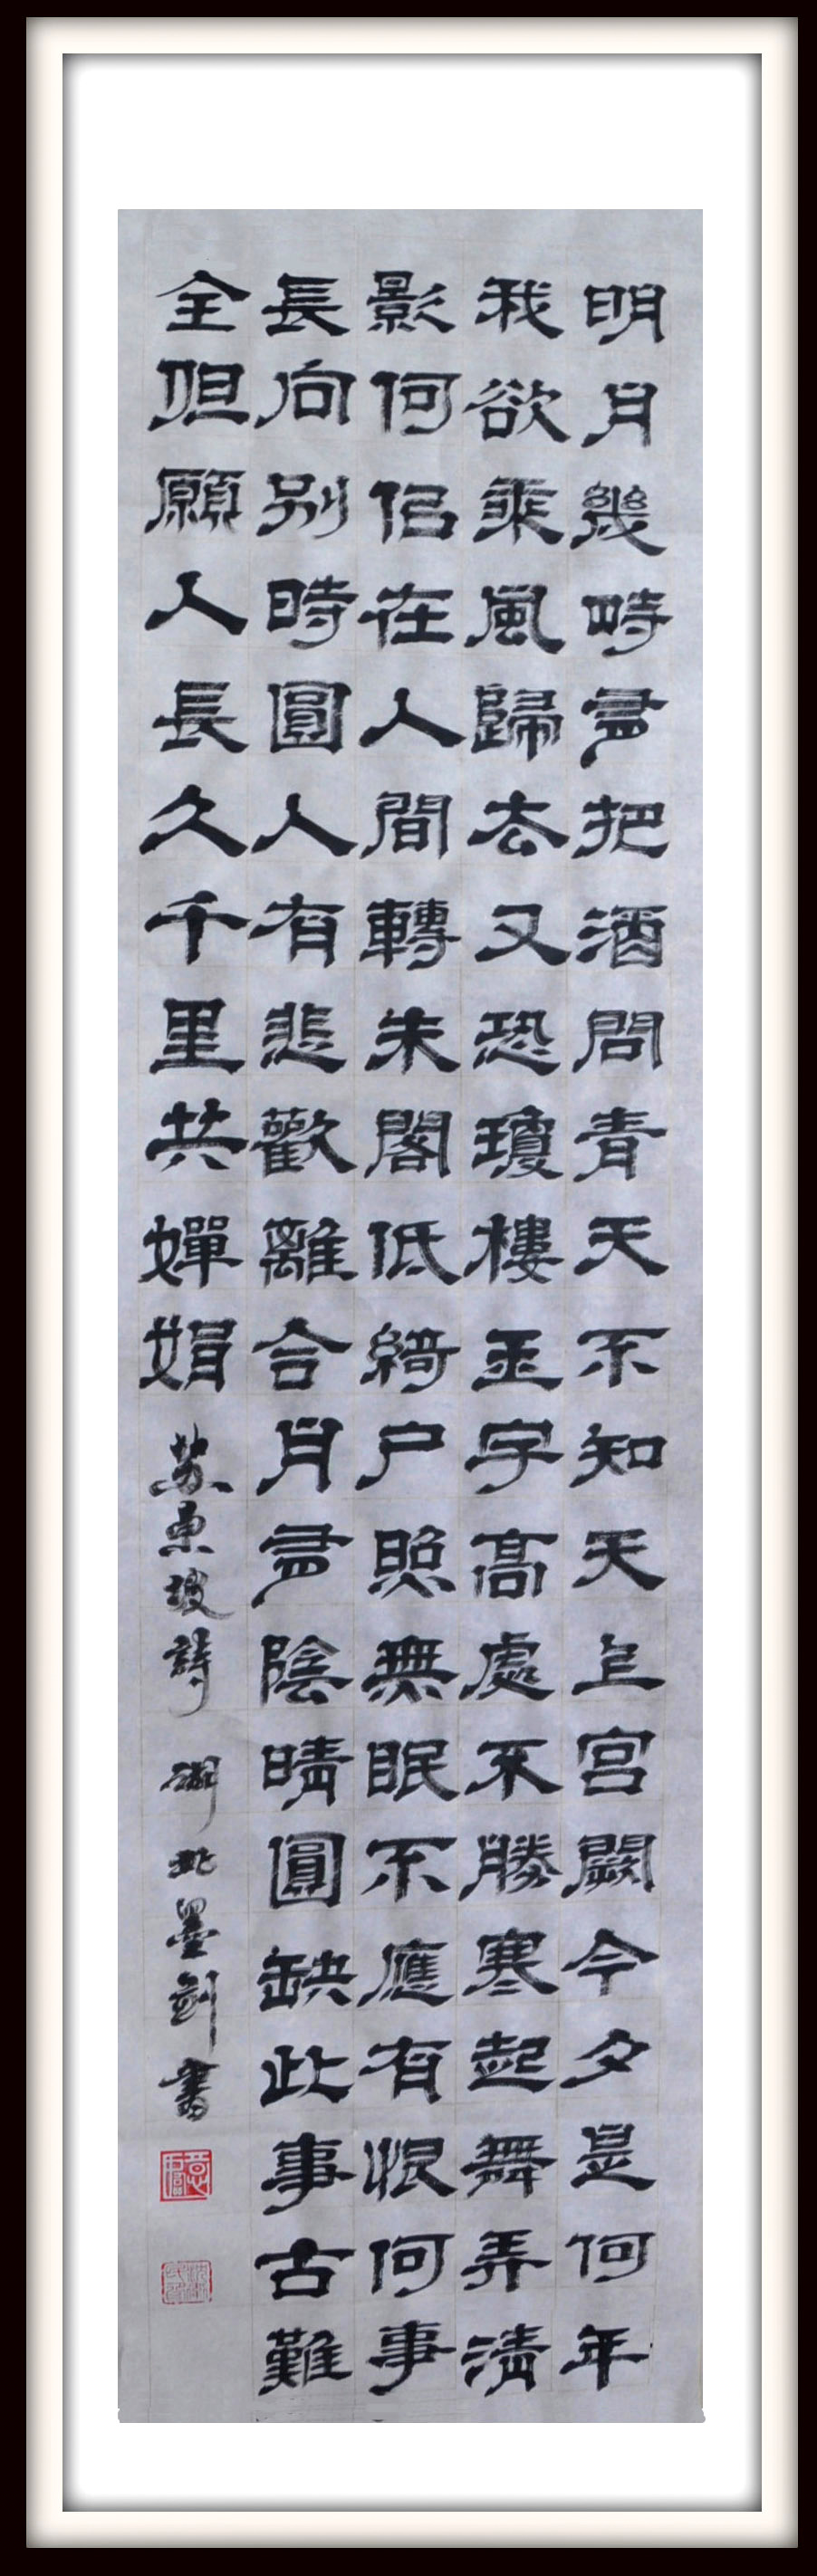 明月幾時有把酒問青天不知天上宫闕今夕是何年
我欲乘風歸去又恐瓊樓玉宇高處不勝寒起舞弄清
影何佀在人間轉朱閣低綺户照無眠不應有恨何事
長向别時圓人有悲歡離合月有陰晴圓缺此事古難
全但願人長久千里共嬋娟 蘇東坡詩 湖北墨劍書